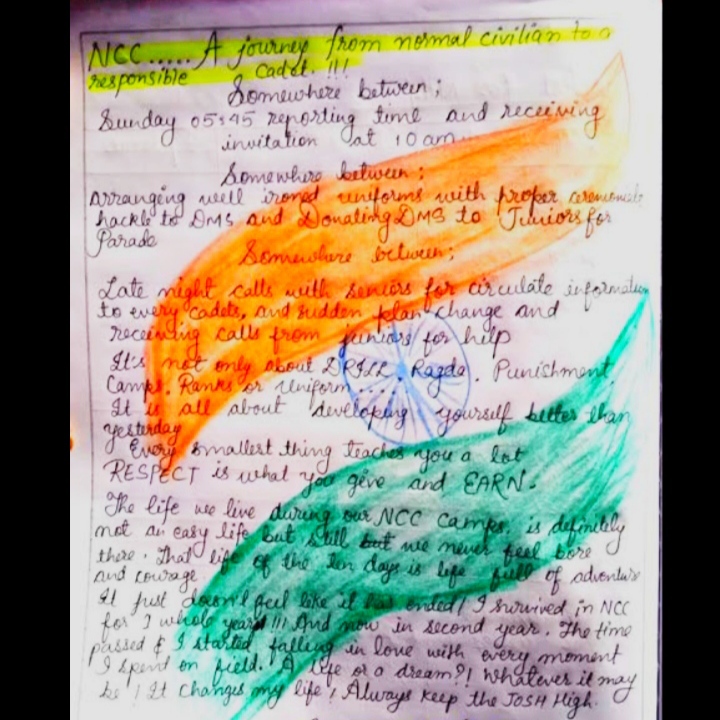 NCC..... A journey from normal civilian to a
responsible cadet. !!!
Somewhere between;
Sunday 05:45 reporting time and receiving
invitation at 10 am
Somewhere between;
arranging well ironed uniforms with proper
hackle to DMS and Donating DMS to Juniors for
Parade
Somewhere between;
Late night calls with seniors for circulate information
to every cadets, and sudden plan change and
receiving calls from juniors for help
It's not only about DRILL, Ragda, Punishment
Camps, Ranks or Uniform
It is all about developing yourself better than
yesterday
Every smallest thing teaches you a lot
RESPECT is what you give and EARN.
The life we live during our NCC Camps, is definitely
not an easy life but still but we never feel bore
there. That life of the ten days is life full of adventure
and courage
It just doesn't feel like it has ended! I survived in NCC
for 1 whole year!!! And now in second year. The time
passed & I started falling in love with every moment
I spend on field. A life or a dream?! Whatever it may
be! It changes my life! Always keep the JOSH High.